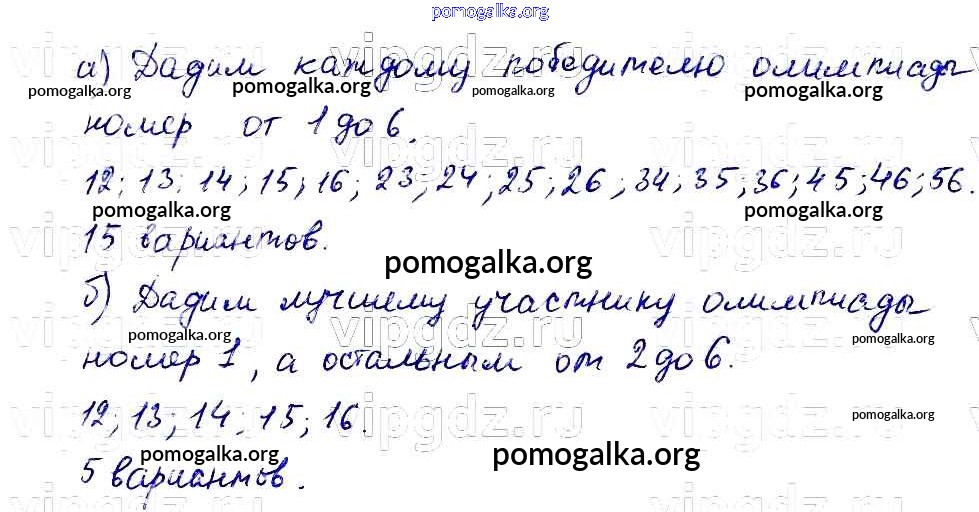 pomogalka.org
vipgdz.ru vipgdz.ru vipgdz.ru
а) Дадим каждому победителю олимпиады
pomogalka.org pomogalka.org pomogalka.org pomogalka.org
номер от 1 до 6.
vipgdz.ru vipgdz.ru vipgdz.ru
12; 13; 14; 15; 16; 23; 24; 25; 26; 34; 35; 36; 45; 46; 56.
pomogalka.org pomogalka.org
15 вариантов.
vipgdz.ru vipgdz.ru vipgdz.ru
pomogalka.org
б) Дадим лучшему участнику олимпиады
vipgdz.ru vipgdz.ru vipgdz.ru
pomogalka.org pomogalka.org
номер 1, а остальным от 2 до 6.
12; 13; 14; 15; 16.
vipgdz.ru vipgdz.ru vipgdz.ru
pomogalka.org
pomogalka.org pomogalka.org
5 вариантов.
vipgdz.ru vipgdz.ru vipgdz.ru